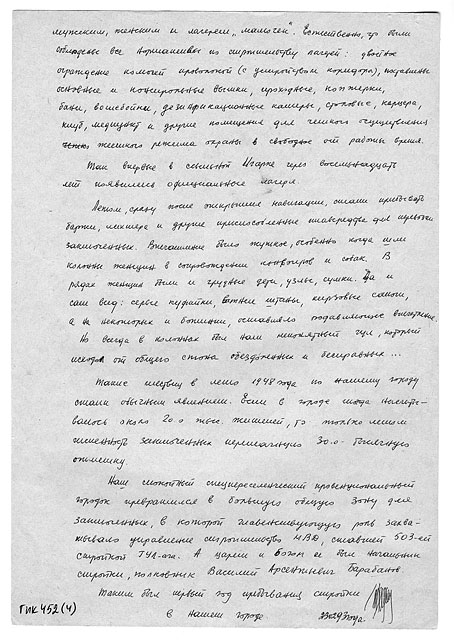 мужским, женским и лагерем „мамочек". Естественно, что были
соблюдены все нормативы по строительству лагерей: двойное
ограждение колючей проволокой (с устройством коридора),
основные и вышки, проходные, каптерки,
бани, вошебойки, дезинфекционные камеры, столовые, карцера,
клуб, медпункт и другие помещения для осуществления
режима охраны в свободное от работы время.
Так впервые в ссыльной Игарке через восемнадцать
лет появились официальные лагеря.
Летом, сразу после открытия навигации, стали прибывать
баржи, лихтера и другие приспособленные для перевозки
заключенных. Впечатление было жуткое, особенно когда шли
колонны женщин в сопровождении конвоиров и собак. В
рядах женщин были и грудные дети, узлы, сумки. Да и
сам вид: серые пуфайки, ватные штаны, кирзовые сапоги,
а на некоторых и ботинки, оставляло подавляющее впечатление.
Но всегда в колоннах был нам непонятный гул, который
исходил от общего стона обездоленных и бесправных...
Такие шествия в лето 1948 года по нашему городу
стали обычным явлением. Если в городе тогда насчиты-
валось около 20о тыс. жителей, то только летом
численность заключенных 30.о-тысячную
отметку.
Наш спокойный спецпереселенческий провинциональный
городок превратился в большую общую Зону для
заключенных, в которой главенствующую роль захва-
тывало управление строительства МВД, ставшей 503-ей
стройкой ГУЛ-ага. А царем и Богом ее был начальник
стройки, полковник Василий Арсентиевич Барабанов.
Таким был первый год пребывания стройки
в нашем городе.
ГИК 452(4)